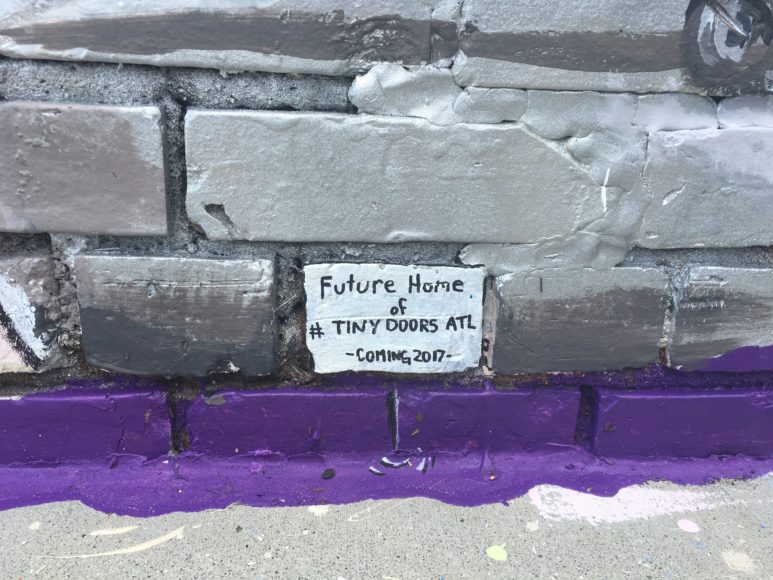 Future Home
of
# TINY DOORS ATL
-COMING 2017-